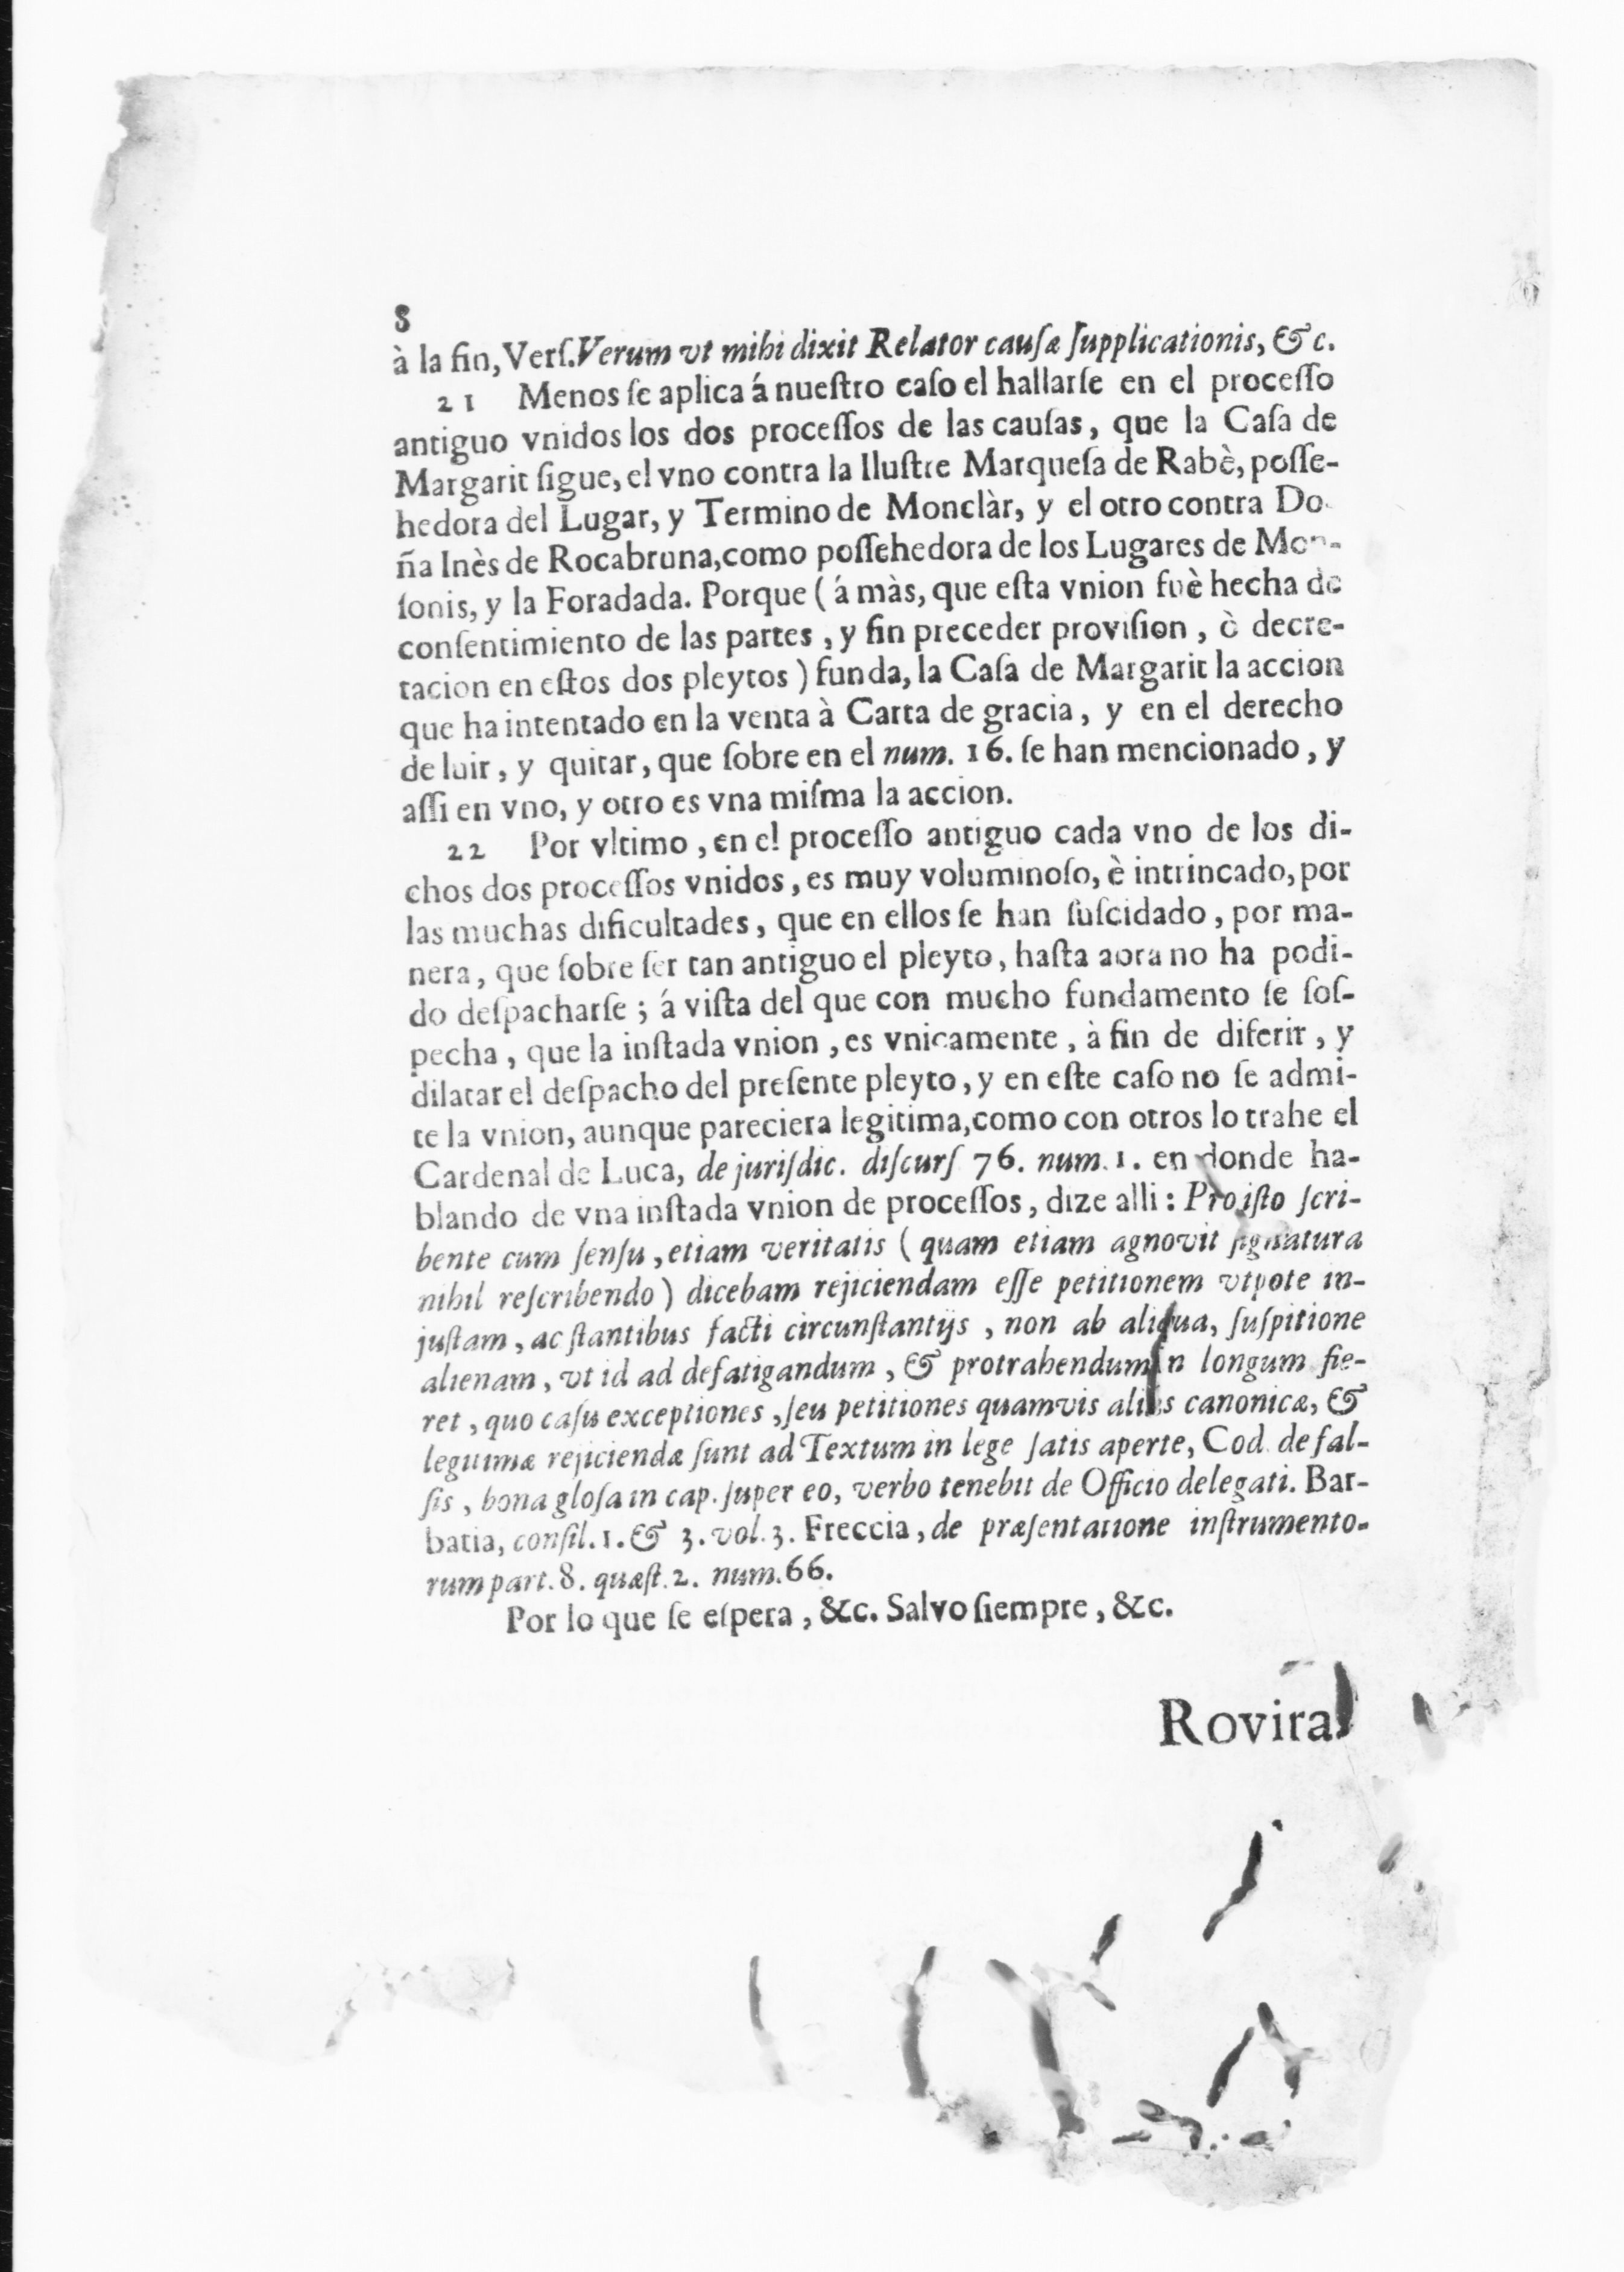 8
à la fin, Verſ. Verum vt mihi dixit Relator cauſæ ſupplicationis, & c.
21 Menos ſe aplica á nueſtro caſo el hallarſe en el proceſſo
antiguo vnidos los dos proceſſos de las cauſas, que la Caſa de
Margarit ſigue, el vno contra la Iluſtre Marqueſa de Rabè, poſſe-
hedora del Lugar, y Termino de Monclàr, y el otro contra Do-
ña Inès de Rocabruna, como poſſehedora de los Lugares de Mon-
ſonis, y la Foradada. Porque ( á màs, que eſta vnion fuè hecha de
conſentimiento de las partes , y ſin preceder proviſion , ò decre-
tacion en eſtos dos pleytos ) funda, la Caſa de Margarit la accion
que ha intentado en la venta à Carta de gracia , y en el derecho
de luir , y quitar, que ſobre en el num. 16. ſe han mencionado , y
aſſi en vno, y otro es vna miſma la accion.
22 Por vltimo , en el proceſſo antiguo cada vno de los di-
chos dos proceſſos vnidos , es muy voluminoſo, è intrincado, por
las muchas dificultades , que en ellos ſe han ſuſcidado , por ma-
nera , que ſobre ſer tan antiguo el pleyto , haſta aora no ha podi-
do deſpacharſe ; á viſta del que con mucho fundamento ſe ſoſ-
pecha , que la inſtada vnion , es vnicamente , à fin de diferir , y
dilatar el deſpacho del preſente pleyto , y en eſte caſo no ſe admi-
te la vnion, aunque pareciera legitima, como con otros lo trahe el
Cardenal de Luca, de juriſdic. diſcurſ 76. num. 1. en donde ha-
blando de vna inſtada vnion de proceſſos , dize alli : Pro iſto ſcri-
bente cum ſenſu , etiam veritatis ( quam etiam agnovit ſignatura
nihil reſcribendo ) dicebam rejiciendam eſſe petitionem vtpote in-
juſtam , ac ſtantibus facti circunſtantijs , non ab aliqua, ſuſpitione
alienam , vt id ad defatigandum , & protrahendum in longum fie-
ret , quo caſu exceptiones , ſeu petitiones quamvis alias canonicæ, &
legitimæ rejiciendæ ſunt ad Textum in lege ſatis aperte, Cod. de fal-
ſis , bona gloſa in cap. ſuper eo, verbo tenebit de Officio delegati. Bar-
batia, conſil. 1. & 3. vol. 3. Freccia , de præſentatione inſtrumento-
rum part. 8. quæſt. 2. num. 66.
Por lo que ſe eſpera , &c. Salvo ſiempre , &c.
Rovira